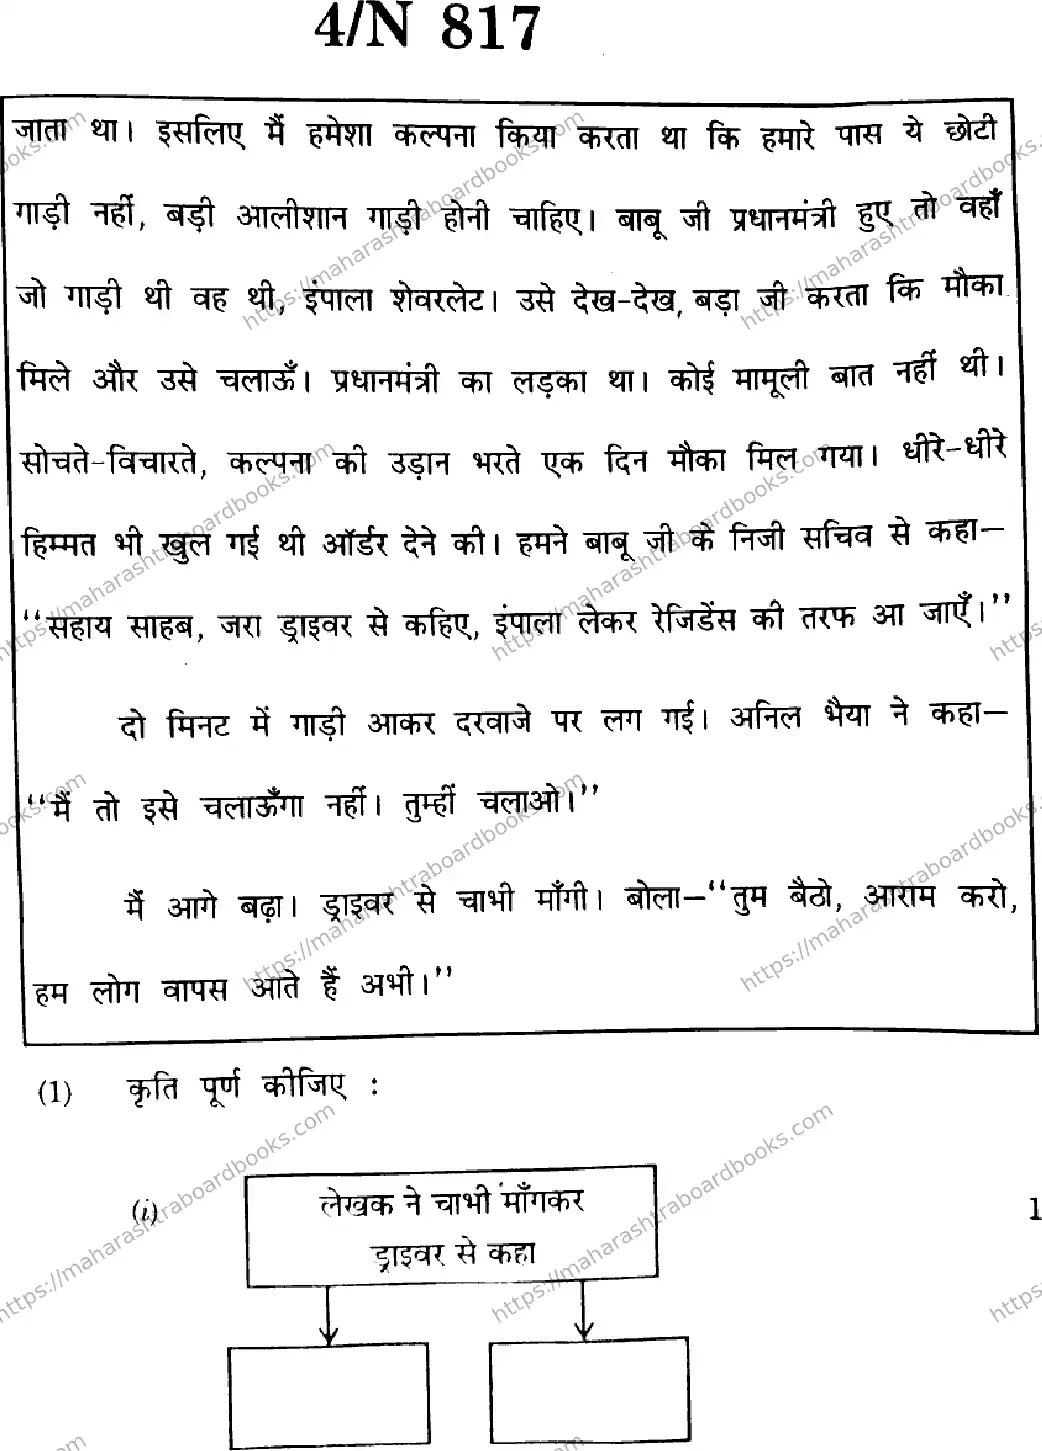 4/N 817
जाता था। इसलिए मैं हमेशा कल्पना किया करता था कि हमारे पास ये छोटी
गाड़ी नहीं, बड़ी आलीशान गाड़ी होनी चाहिए। बाबू जी प्रधानमंत्री हुए तो वहाँ
जो गाड़ी थी वह थी, इंपाला शेवरलेट। उसे देख-देख, बड़ा जी करता कि मौका
मिले और उसे चलाऊँ। प्रधानमंत्री का लड़का था। कोई मामूली बात नहीं थी।
सोचते-विचारते, कल्पना की उड़ान भरते एक दिन मौका मिल गया। धीरे-धीरे
हिम्मत भी खुल गई थी ऑर्डर देने की। हमने बाबू जी के निजी सचिव से कहा—
“सहाय साहब, जरा ड्राइवर से कहिए, इंपाला लेकर रेजिडेंस की तरफ आ जाएँ।”
दो मिनट में गाड़ी आकर दरवाजे पर लग गई। अनिल भैया ने कहा—
“मैं तो इसे चलाऊँगा नहीं। तुम्हीं चलाओ।”
मैं आगे बढ़ा। ड्राइवर से चाभी माँगी। बोला—“तुम बैठो, आराम करो,
हम लोग वापस आते हैं अभी।”
(1) कृति पूर्ण कीजिए :
(i) लेखक ने चाभी माँगकर 1
ड्राइवर से कहा
https://maharashtraboardbooks.com